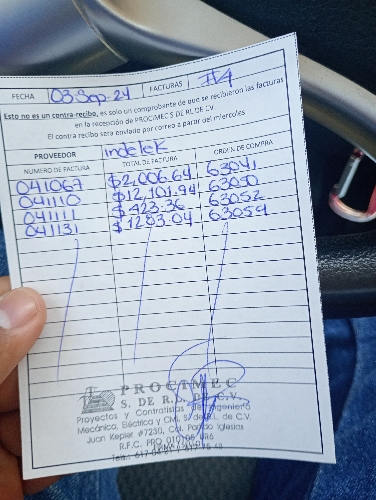 FECHA 03-Sep-24 FACTURAS #4
Esto no es un contra-recibo, es solo un comprobante de que se recibieron las facturas
en la recepción de PROCIMEC S DE RL DE C.V.
El contra recibo será enviado por correo a partir del miercoles
PROVEEDOR indetek
NUMERO DE FACTURA TOTAL DE FACTURA ORDEN DE COMPRA
041067 $2,006.64 63041
041110 $12,101.94 63050
041111 $423.36 63052
041131 $1283.04 63059
PROCIMEC
S. DE R.L. DE C.V.
Proyectos y Contratistas de Ingeniería
Mecánica, Eléctrica y Civil S. de R.L. de C.V.
Juan Kepler #7230, Col. Pablo Iglesias
R.F.C. PRO
Tel.: 617-